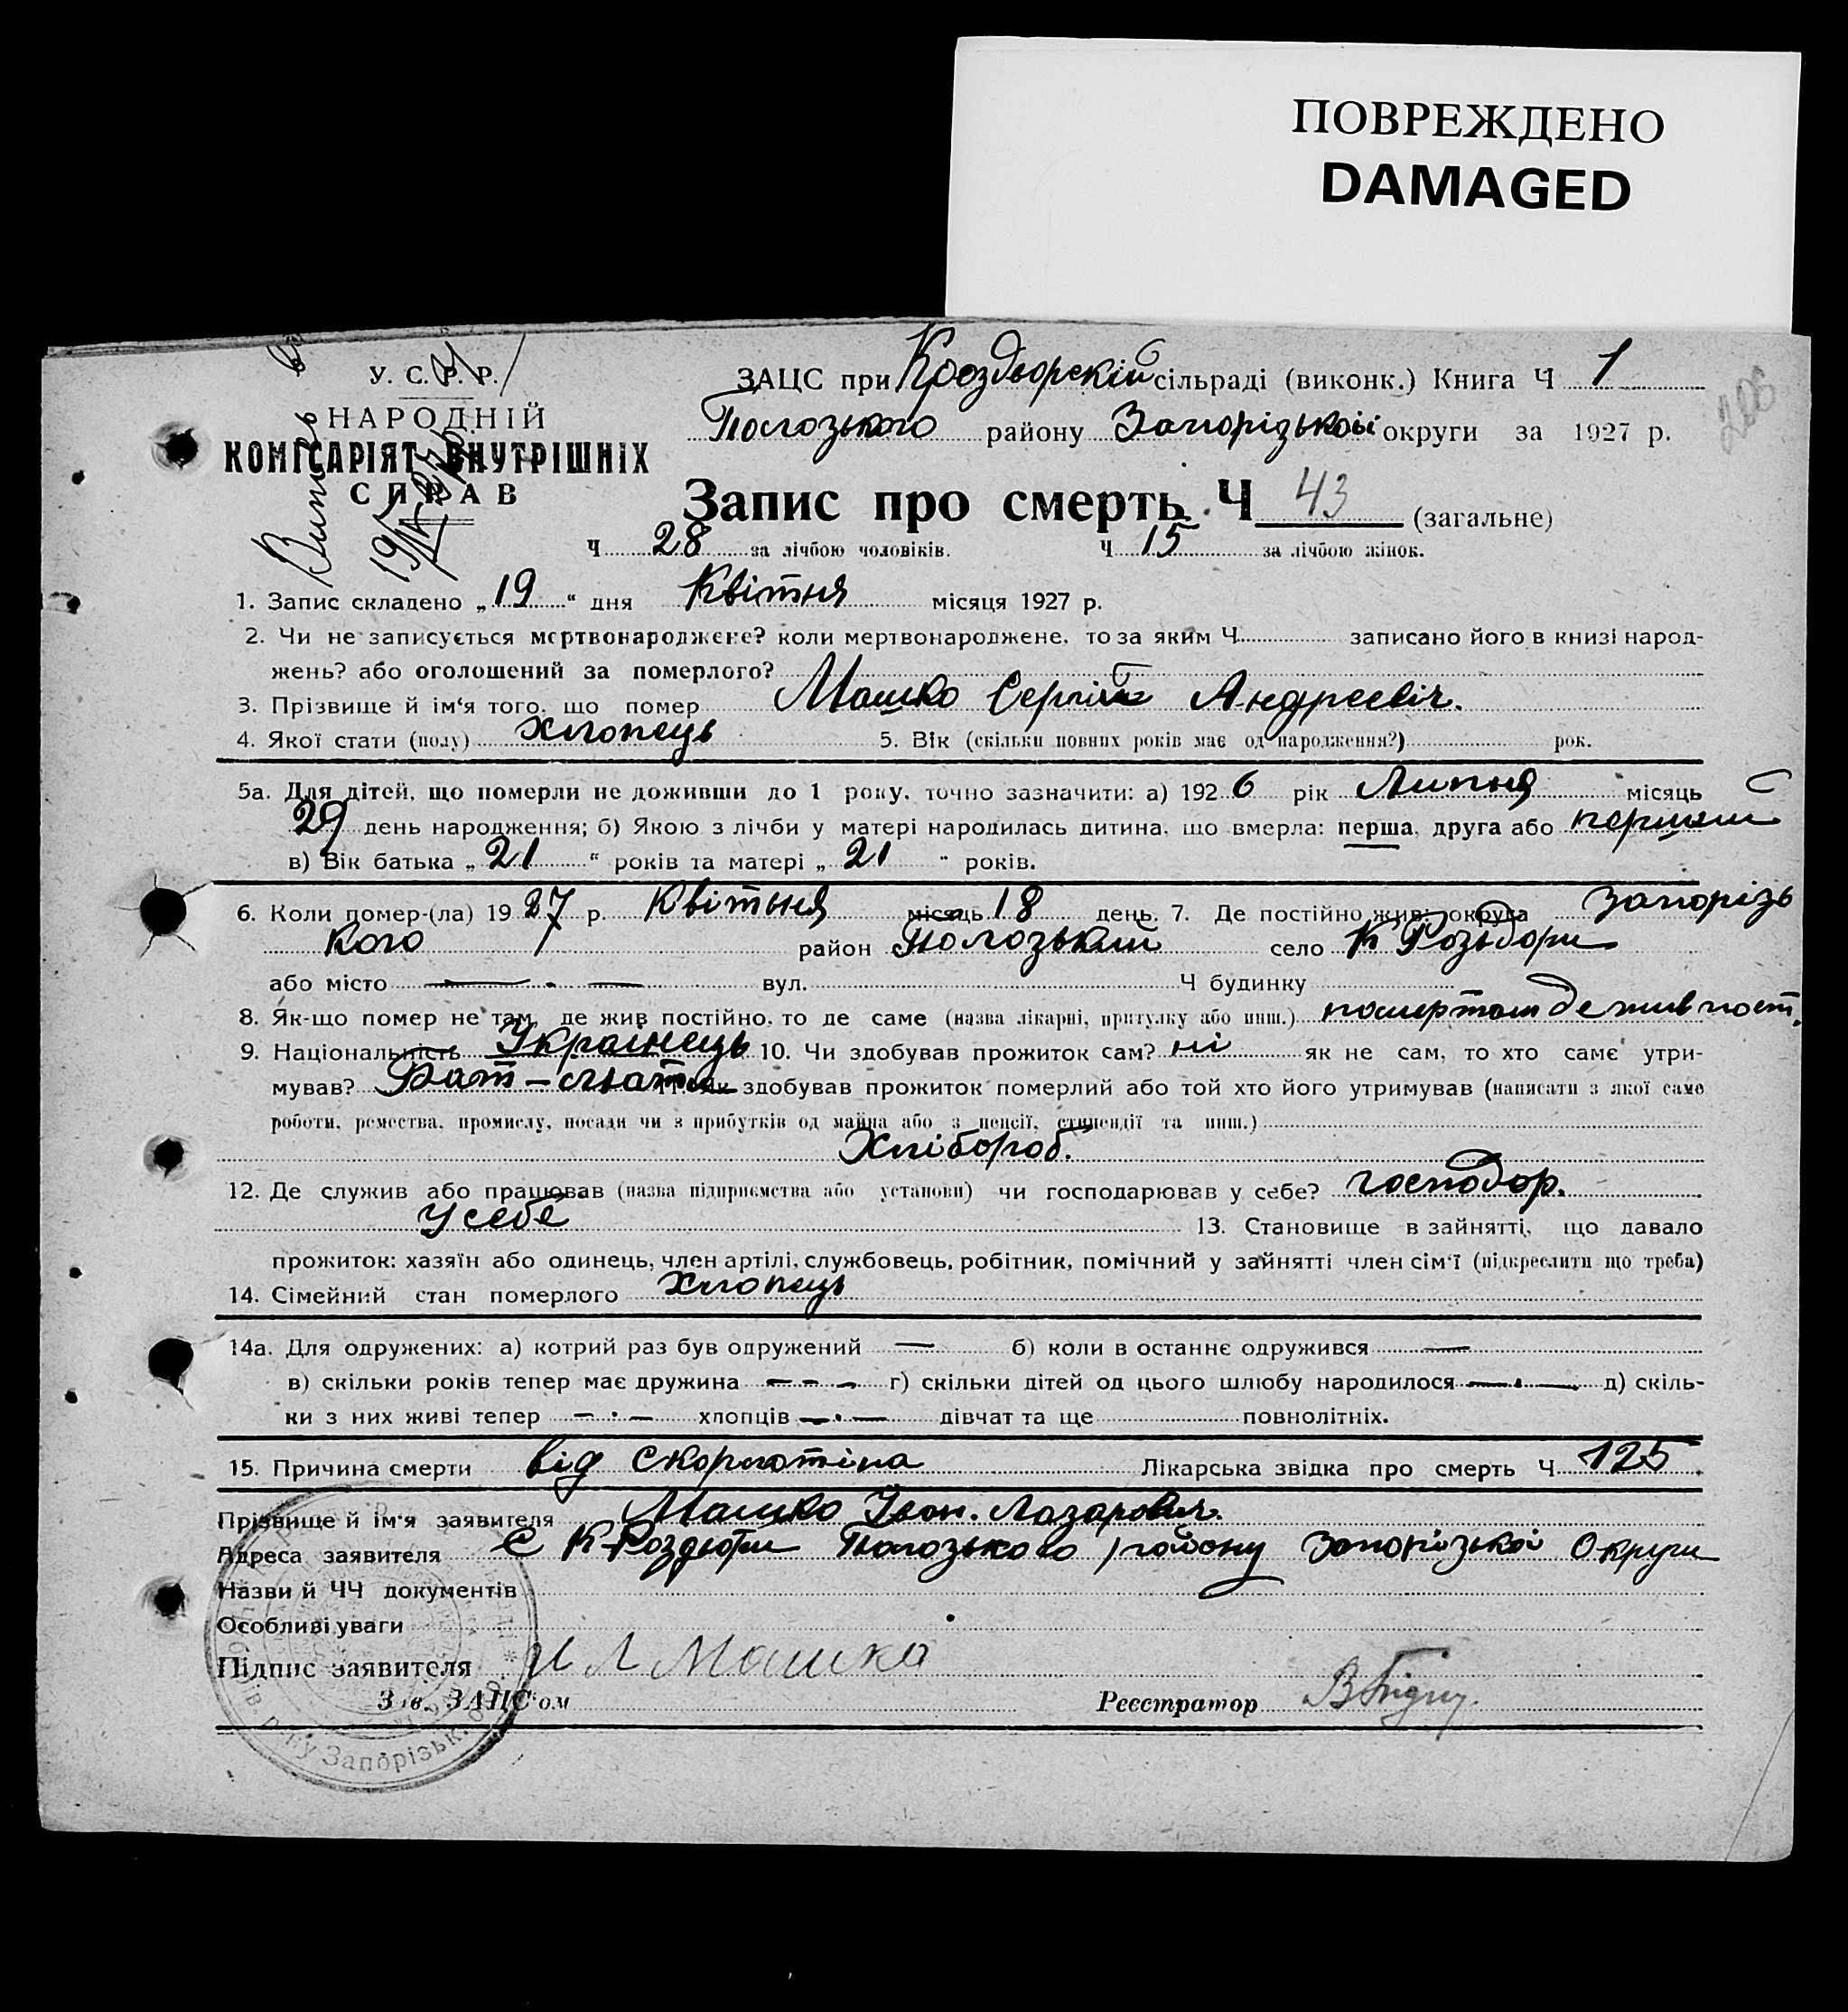 ПОВРЕЖДЕНО
DAMAGED
У. С. Р. Р.
НАРОДНІЙ
КОМІСАРІЯТ ВНУТРІШНІХ
СПРАВ
Витяг
19/IV
ЗАЦС при Кроздворскій сільраді (виконк.) Книга Ч 1
Пологзького району Запорізькоі округи за 1927 р.
206
Запис про смерть Ч 43 (загальне)
Ч 28 за лічбою чоловіків. Ч 15 за лічбою жінок.
1. Запис складено „ 19 “ дня Квітня місяця 1927 р.
2. Чи не записується мертвонароджене? коли мертвонароджене, то за яким Ч записано його в книзі народ-
жень? або оголошений за померлого?
3. Прізвище й ім‘я того, що помер Машко Сергій Андреєвіч.
4. Якої стати (полу) Хлопець 5. Вік (скільки повних років має од народження?) рок.
5а. Для дітей, що померли не доживши до 1 року, точно зазначити: а) 192 6 рік Липня місяць
29 день народження; б) Якою з лічби у матері народилась дитина, що вмерла: перша, друга або
в) Вік батька „ 21 “ років та матері „ 21 “ років.
6. Коли помер-(ла) 19 27 р. Квітня місяць 18 день. 7. Де постійно жив: округа Запорізь
кого район Полозький село К Розьдори
або місто — . — вул. Ч будинку
8. Як-що помер не там, де жив постійно, то де саме (назва лікарні, притулку або инш.) помер там де жив пост.
9. Національність Українець 10. Чи здобував прожиток сам? ні як не сам, то хто саме утри-
мував? Бат-мат 11. Як здобував прожиток померлий або той хто його утримував (написати з якої саме
роботи, ремества, промислу, посади чи з прибутків од майна або з пенсії, стипендії та инш.)
Хлібороб.
12. Де служив або працював (назва підприємства або установи) чи господарював у себе? господор.
У себе 13. Становище в зайнятті, що давало
прожиток: хазяїн або одинець, член артілі, службовець, робітник, помічний у зайнятті член сім‘ї (підкреслити що треба)
14. Сімейний стан померлого Хлопець
14а. Для одружених: а) котрий раз був одружений — б) коли в останнє одружився —
в) скільки років тепер має дружина — — — г) скільки дітей од цього шлюбу народилося — . — д) скіль-
ки з них живі тепер — . — хлопців — . — дівчат та ще повнолітніх.
15. Причина смерти від скорлотіна Лікарська звідка про смерть Ч 125.
Прізвище й ім‘я заявителя Машко Іван. Лазарович.
Адреса заявителя С К-Роздори Пологзького району Запорізькоі Округи
Назви й ЧЧ документів
Особливі уваги
Підпис заявителя И Л Машко
Зав. ЗАЦС‘ом Реєстратор
Запорізьк.